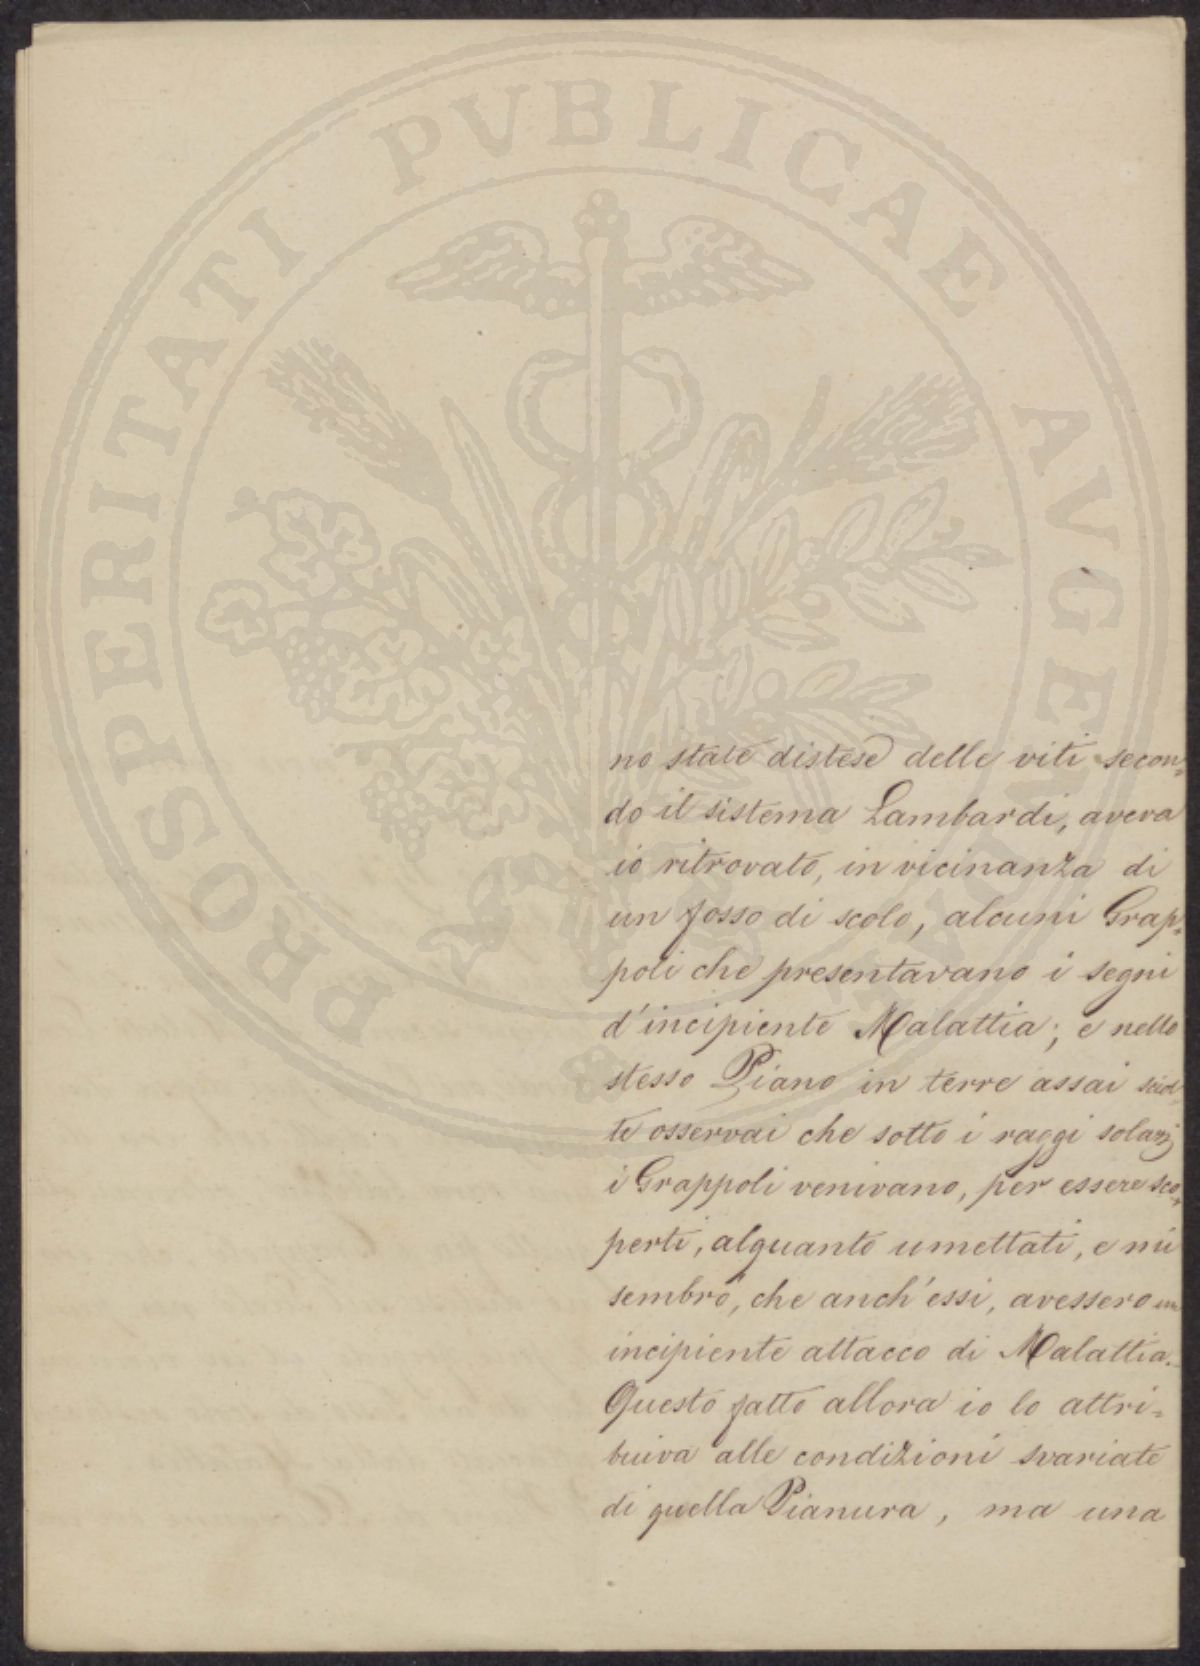 PROSPERITATI PVBLICAE AVGENDAE
no state distese delle viti secon=
do il sistema Lambardi, aveva
io ritrovato, in vicinanza di
un fosso di scolo, alcuni Grap=
poli che presentavano i segni
d'incipiente Malattia; e nello
stesso Piano in terre assai sciol=
te osservai che sotto i raggi solari
i Grappoli venivano, per essere sco=
perti, alquanto umettati, e mi
sembrò, che anch'essi, avessero un
incipiente attacco di Malattia.
Questo fatto allora io lo attri=
buiva alle condizioni svariate
di quella Pianura, ma una